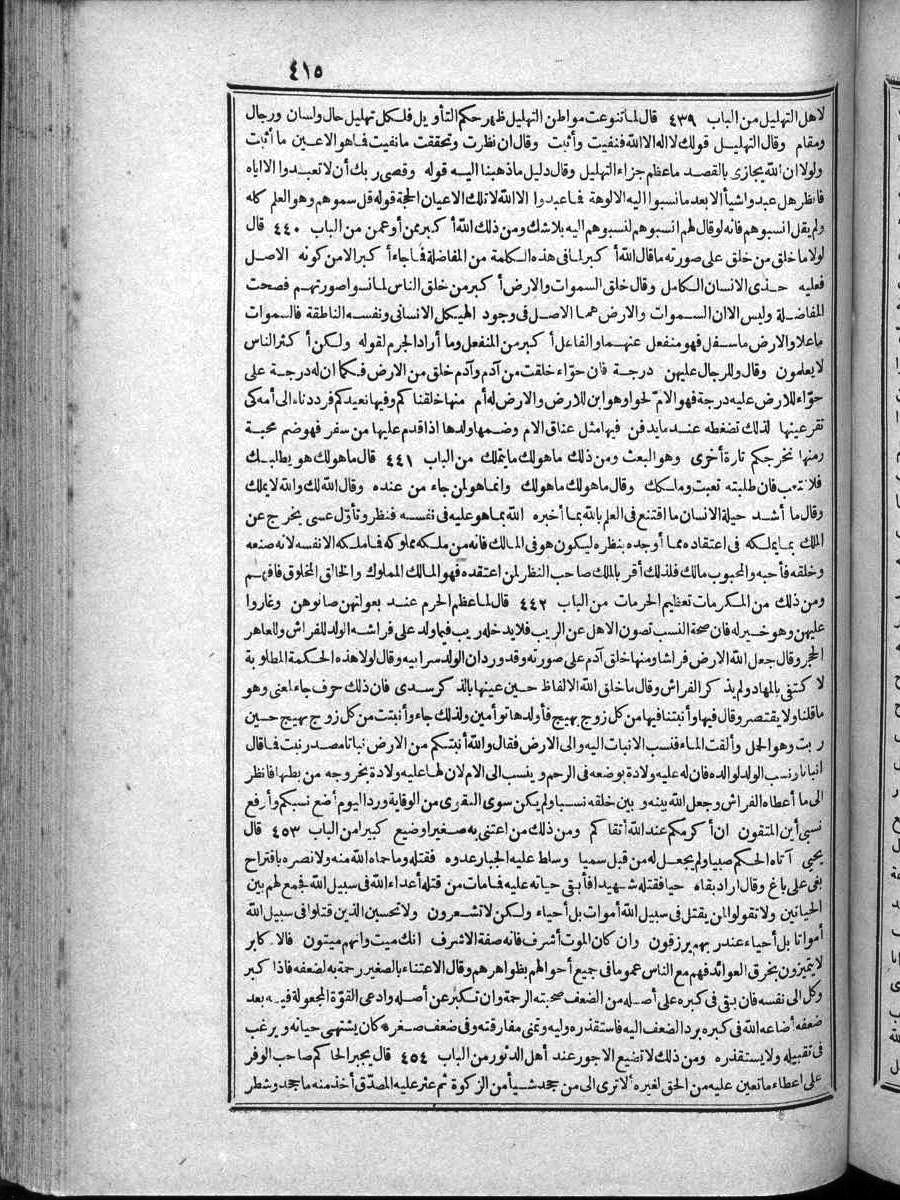 ٤١٥
لاهل التهليل من الباب ٤٣٩ قال لما تنوعت مواطن التهليل ظهر حكم التأويل فلكل تهليل حال ولسان ورجال
ومقام وقال التهليل قولك لا اله الا الله فنفيت وأثبت وقال ان نظرت وتحققت مانفيت فاهو الاعين ما أثبت
ولولا ان الله يجازى بالقصد ماعظم جزاء التهليل وقال دليل ماذهبنا اليه قوله وقضى ربك أن لا تعبدوا الا اياه
فانظر هل عبدوا شيأ الا بعد مانسبوا اليه الالوهة فاعبدوا الا الله لا تلك الاعيان الحجة قوله قل سموهم وهو العلم كله
ولم يقل انسبوهم فانه لو قال لهم انسبوهم لنسبوهم اليه بلاشك ومن ذلك الله أكبر ممن أو عمن من الباب ٤٤٠ قال
لولا ماخلق من خلق على صورته ماقال الله أكبر لما فى هذه الكلمة من المفاضلة فاجاء أكبر الا من كونه الاصل
فعليه حذى الانسان الكامل وقال خلق السموات والارض أكبر من خلق الناس لما نسوا صورتهم فصحت
المفاضلة وليس الا ان السموات والارض هما الاصل فى وجود الهيكل الانسانى ونفسه الناطقة فالسموات
ماعلا والارض ماسفل فهو منفعل عنهما والفاعل أكبر من المنفعل وما أراد الجرم لقوله ولكن أكثر الناس
لا يعلمون وقال وللرجال عليهن درجة فان حوّاء خلقت من آدم وآدم خلق من الارض فكما ان له درجة على
حوّاء للارض عليه درجة فهو الامّ لحوا وهو ابن للارض والارض له أم منها خلقنا كم وفيها نعيدكم فرددناه الى أمه كى
تقر عينها لذلك تضغطه عند مايدفن فيها مثل عناق الام وضمها ولدها اذا قدم عليها من سفر فهو ضم محبة
ومنها نخرجكم تارة أخرى وهو البعث ومن ذلك ماهولك مايملك من الباب ٤٤١ قال ماهولك هو يطالبك
فلا تتعب فان طلبته تعبت وماملكت وقال ماهولك ماهولك وانما هو لمن جاء من عنده وقال الله لك والله لا يملك
وقال ما أشد حيلة الانسان ما اقتنع فى العلم بالله بما أخبره الله بما هو عليه فى نفسه فنظر وتأوّل عسى يخرج عن
الملك بما يملكه فى اعتقاده مما أوجده بنظره ليكون هو فى المالك فانه من ملكه مملوكه فاملكه الانفسه لانه صنعه
وخلقه فأحبه والمحبوب مالك فلذلك أقر بالملك صاحب النظر لمن اعتقده فهو المالك المملوك والخالق المخلوق فافهم
ومن ذلك من المكرمات تعظيم الحرمات من الباب ٤٤٢ قال لما عظم الحرم عند بعولتهن صانوهن وغاروا
عليهن وهو خير له فان صحة النسب تصون الاهل عن الريب فلا يدخله ريب فيما ولد على فراشه الولد للفراش وللعاهر
الحجر وقال جعل الله الارض فراشا ومنها خلق آدم على صورته وقد ورد ان الولد سر ابيه وقال لولا هذه الحكمة المطلوبة
لا كتفى بالمهاد ولم يذكر الفراش وقال ماخلق الله الالفاظ حين عينها بالذكر سدى فان ذلك حرف جاء لمعنى وهو
ماقلنا ولا يقتصر وقال فيها وأنبتنا فيها من كل زوج بهيج فأولدها توأمين ولذلك جاء وأنبتت من كل زوج بهيج حين
ربت وهو الحمل وألقت الماء فنسب الانبات اليه والى الارض فقال والله أنبتكم من الارض نباتا مصدر نبت فاقال
انباتا ونسب الولد لوالده فان له عليه ولادة بوضعه فى الرحم وينسب الى الام لان لها عليه ولادة بخروجه من بطنها فانظر
الى ما أعطاه الفراش وجعل الله بينه وبين خلقه نسبا ولم يكن سوى التقوى من الوقاية ورد اليوم أضع نسبكم وأرفع
نسبى أين المتقون ان أكرمكم عند الله أتقاكم ومن ذلك من اعتنى به صغيرا وضيع كبيرا من الباب ٤٥٣ قال
يحيى آتاه الحكم صبيا ولم يجعل له من قبل سميا وسلط عليه الجبار عدوه فقتله وماحماه الله منه ولا نصره باقتراح
بغى على باغ وقال اراد بقاه حيا فقتله شهيدا فأبقى حياته عليه فامات من قتله أعداء الله فى سبيل الله فجمع لهم بين
الحياتين ولا تقولوا لمن يقتل فى سبيل الله أموات بل أحياء ولكن لا تشعرون ولا تحسبن الذين قتلوا فى سبيل الله
أمواتا بل أحياء عند ربهم يرزقون وان كان الموت أشرف فانه صفة الاشرف انك ميت وانهم ميتون فالاكابر
لا يتميزون بخرق العوائد فهم مع الناس عموما فى جميع أحوالهم بظواهرهم وقال الاعتناء بالصغير رحمة به لضعفه فاذا كبر
وكل الى نفسه فان بقى فى كبره على أصله من الضعف صحبته الرحمة وان تكبر عن أصله وادعى القوّة المجعولة فيه بعد
ضعفه أضاعه الله فى كبره برد الضعف اليه فاستقذره وليه وتمنى مفارقته وفى ضعف صغره كان يشتهى حياته ويرغب
فى تقبيله ولا يستقذره ومن ذلك لا تضيع الاجور عند أهل الدثور من الباب ٤٥٤ قال يجبر الحاكم صاحب الوفر
على اعطاء ماتعين عليه من الحق لغيره ألا ترى الى من جحد شيأ من الزكوة ثم عثر عليه المصدّق أخذ منه ماجحد وشطر